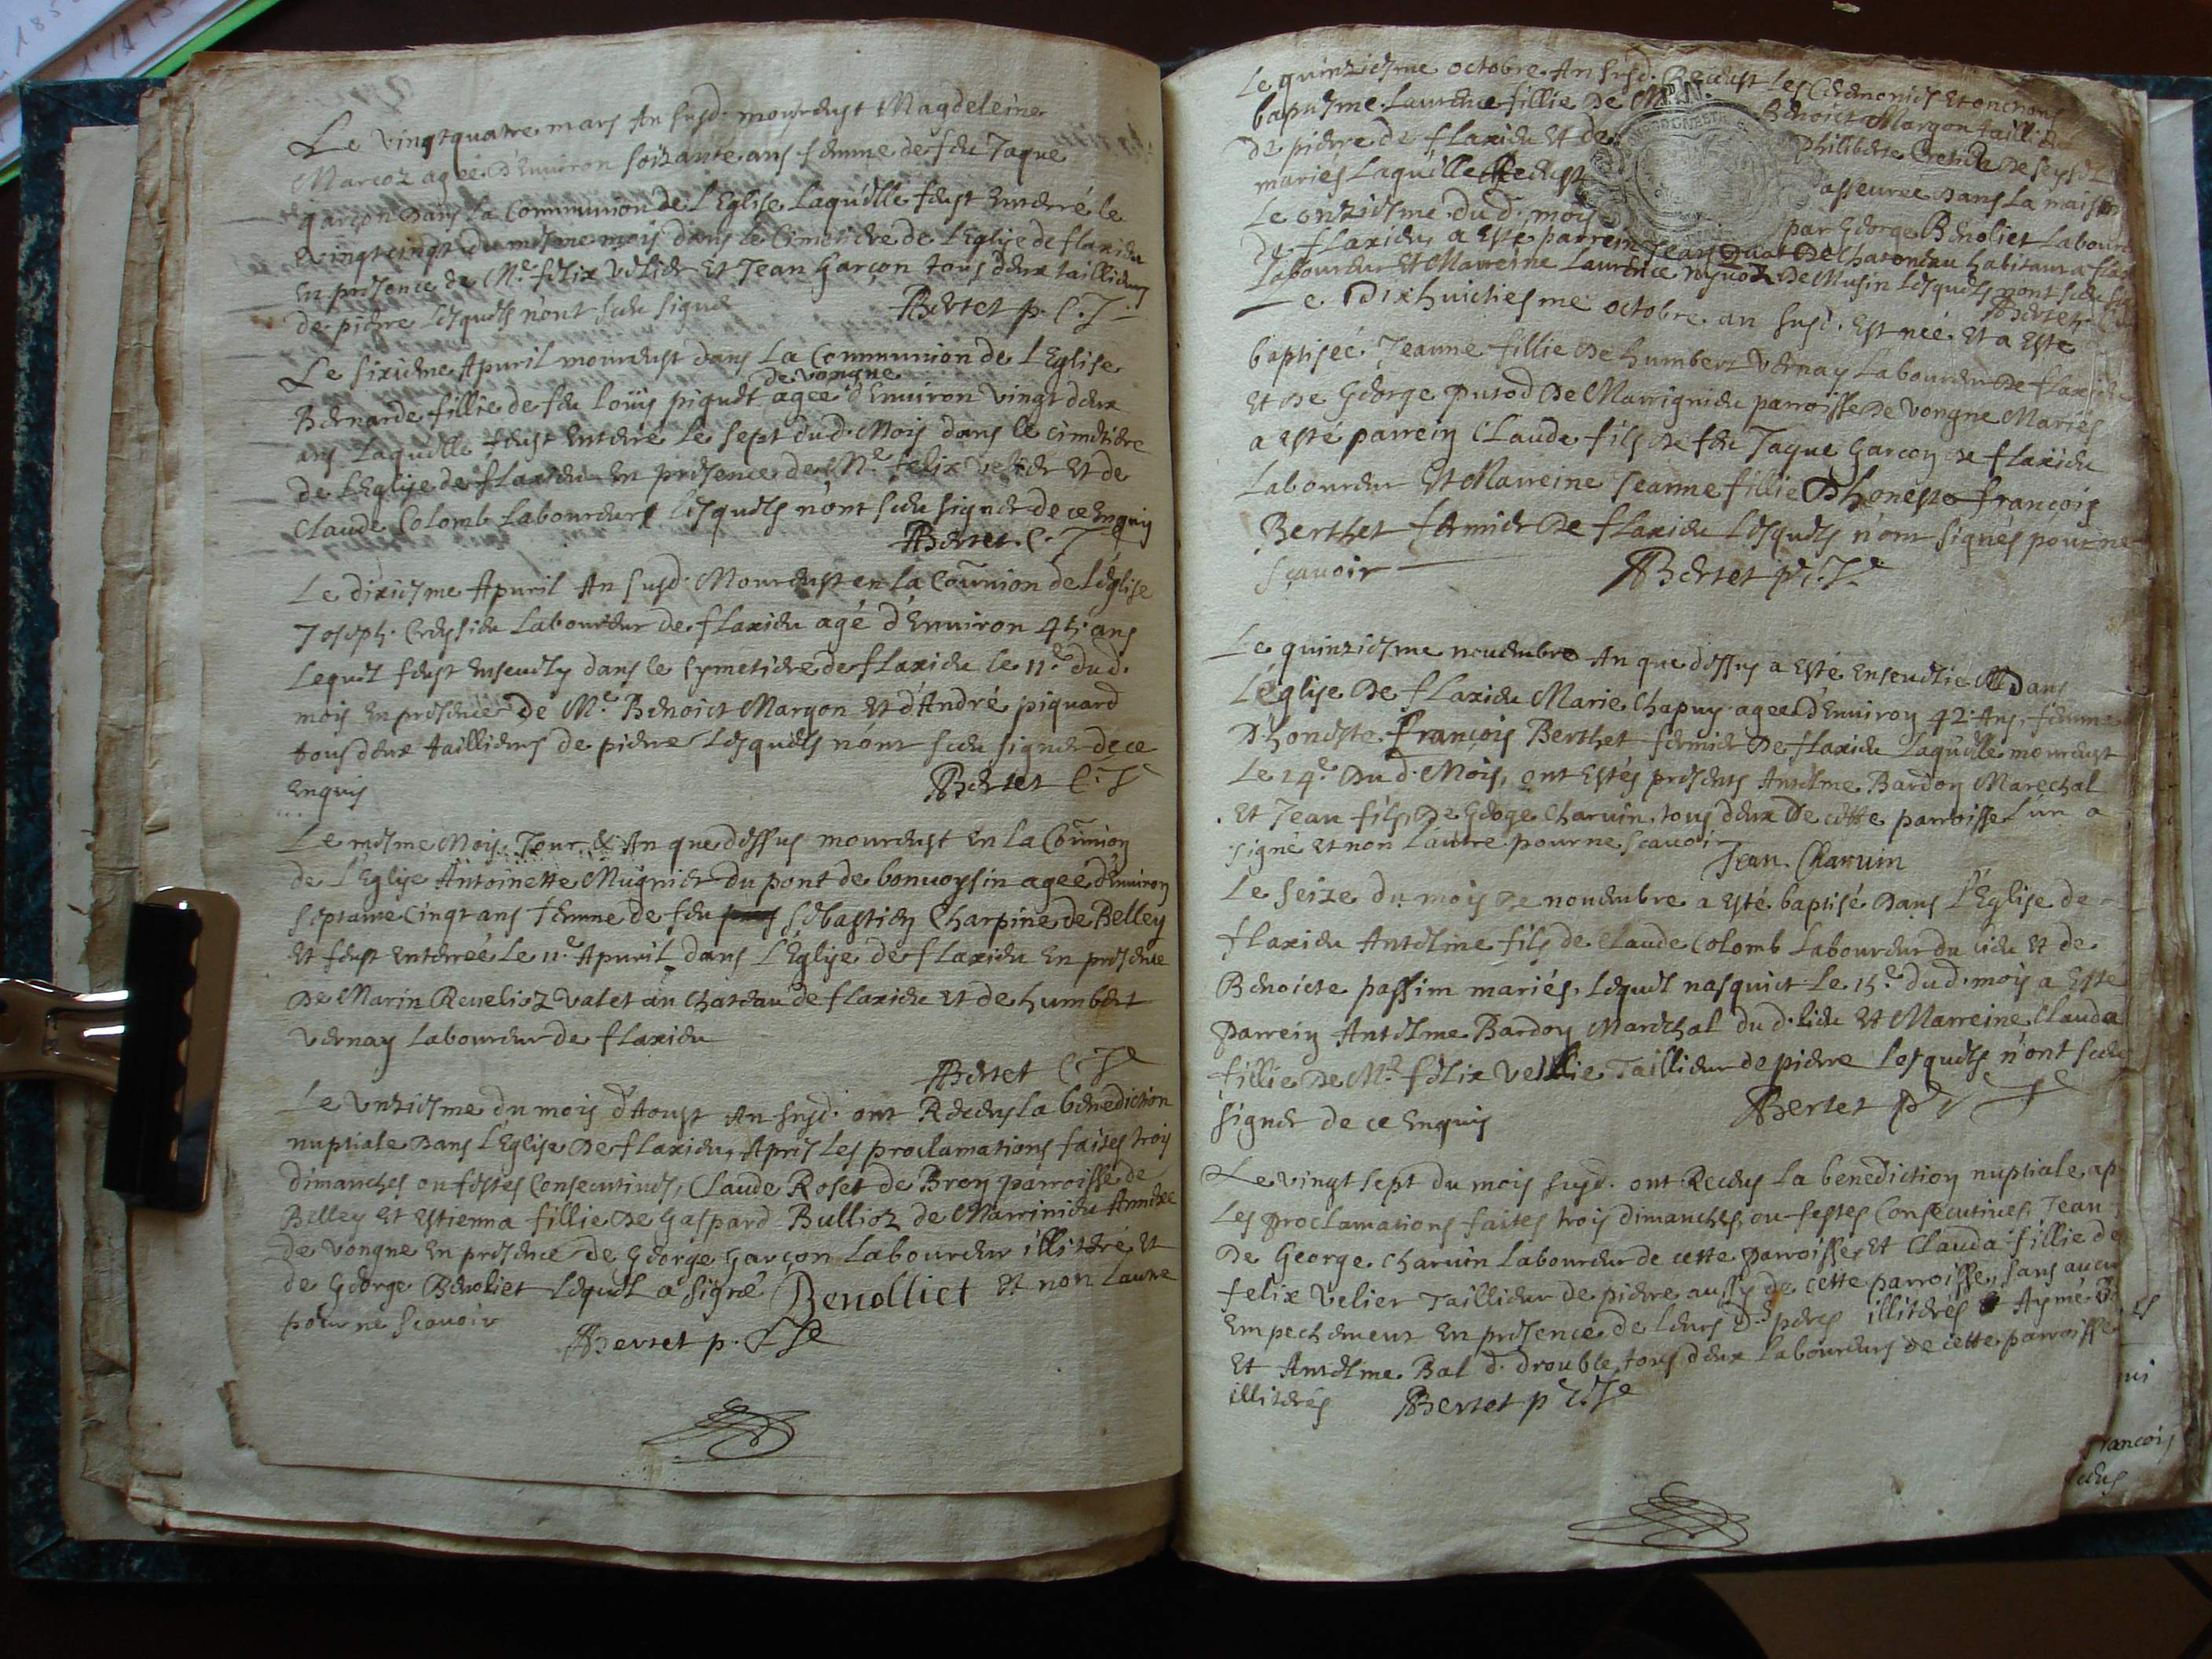 Le vingtquatre mars An susd. mourust Magdeleine
Marcoz agée d'Environ soizante ans femme de feu Jaque
garçon dans la Communion de L'Eglise Laquelle feust Enterré le
vingtcinqt du mesme mois dans le Cimetiere de L'Eglise de flaxieu
En presence de Me. felix velier Et Jean Garçon tous deux taillieurs
de pierre Lesquels n'ont sceu signer Bertet p. C.
Le sixieme Apuril mourust dans La Communion de L'Eglise
de vongne
Bernarde fillie de feu loüis piquet agée d'Environ vingt deux
ans Laquelle feust Enterré Le sept dud. Mois dans le cimetiere
de L'Eglise de flaxieu En presence de Me. felix velier Et de
Claude Colomb Laboureurs lesquels n'ont sceu signer de ce Enquis
Bertet. C.
Le dixiesme Apuril An susd. Mourust en la Coñunion de L'eglise
Joseph. Creysieu Laboureur de flaxieu agé d'Environ 45. ans
Lequel feust Ensevely dans le Cymetiere de flaxieu le 11e dud.
mois En presence de Me. Benoict Margon Et d'André piquard
tous deux taillieurs de pierre Lesquels n'ont sceu signer de ce
Enquis Bertet C.
Le mesme Mois, Jour & An que dessus mourust En la Coñunion
de L'Eglise Antoinette Mugnier du pont de bonvoysin agée d'Environ
septante Cinqt ans femme de feu Sebastien Charpine de Belley
Et feust Enterreé Le 11e. Apuril dans L'Eglise de flaxieu En presence
De Marin Revelioz valet au Chateau de flaxieu Et de humbert
vernay Laboureur de flaxieu
Bertet C.
Le Unziesme du mois d'Aoust An susd. ont Receus La benediction
nuptiale Dans L'Eglise De flaxieu, Apres Les proclamations faites trois
dimanches ou festes Consecutives, Claude Roset de Bren parroisse de
Belley Et Estienna fillie De Gaspard Bullioz de Marrinieu Annexe
de vongne En presence de George Garçon Laboureur illiteré Et
de George Benoliet Lequel a signé Benolliet Et non L'autre
pour ne scavoir
Bertet p.
Le quinziesme octobre. An susd. Receust Les Ceremonies Et onctions
baptisme. Laurence fillie De Me Benoict Margon taillieur
De pierre de flaxieu Et de Philiberte De
mariés Laquelle Receust asseurée Dans La maison
Le onziesme. du d. mois par George Benoliet Laboureur
de flaxieu, a Este parrein Jean De Chatoneau habitant a
Laboureur Et Marreine Laurence De Musin lesquels n'ont sceu
Bertet
Le Dixhuictiesme octobre. an susd. Est neé. Et a Este
baptiseé. Jeanne fillie De humbert vernay Laboureur De flaxieu
Et De George putod De Marrignieu parroisse De vongne Mariés
a esté parrein Claude fils De feu Jaque Garcon De flaxieu
Laboureur Et Marreine Jeanne fillie D'honeste françois
Berthet fermier De flaxieu Lesquels n'ont signés pour ne
scavoir Bertet p.
Le quinziesme novembre An que dessus a Esté Ensevelie Dans
L'églisse De flaxieu Marie Chapuy ageé d'Environ 42. Ans, femme
D'honeste. françois Berthet fermier De flaxieu Laquelle mourust
Le 14e. Du d. Mois, ont Estés presents Antelme Bardon Marechal
Et Jean fils De George Charvin, tous deux De cette parroisse L'un a
signé Et non L'autre. pour ne scavoir
Jean. Charvin
Le seize du mois De novembre a Esté baptisé Dans L'Eglise de
flaxieu Antelme fils de Claude Colomb Laboureur du lieu Et de
Benoicte passim mariés, Lequel nasquict Le 15.e dud. mois a Este
parrein Antelme Bardon Marechal du d. lieu Et Marreine Clauda
fillie De Me. felix Vellie Taillieur de pierre lesquels n'ont sceu
signer de ce Enquis Bertet p
Le vingt sept du mois susd. ont Receus La benediction nuptiale, ap
Les proclamations faites trois dimanches, ou festes Consecutives, Jean
De George Charvin Laboureur de cette parroisse Et Clauda fillie de
felix Velier Taillieur de pierre aussy de cette parroisse, sans aucun
Empechement En presence de Leurs d. peres illiterés Aymé
Et Antelme. Bal d. drouble tous deux Laboureurs de cette parroisse
illiterés Bertet p
francois